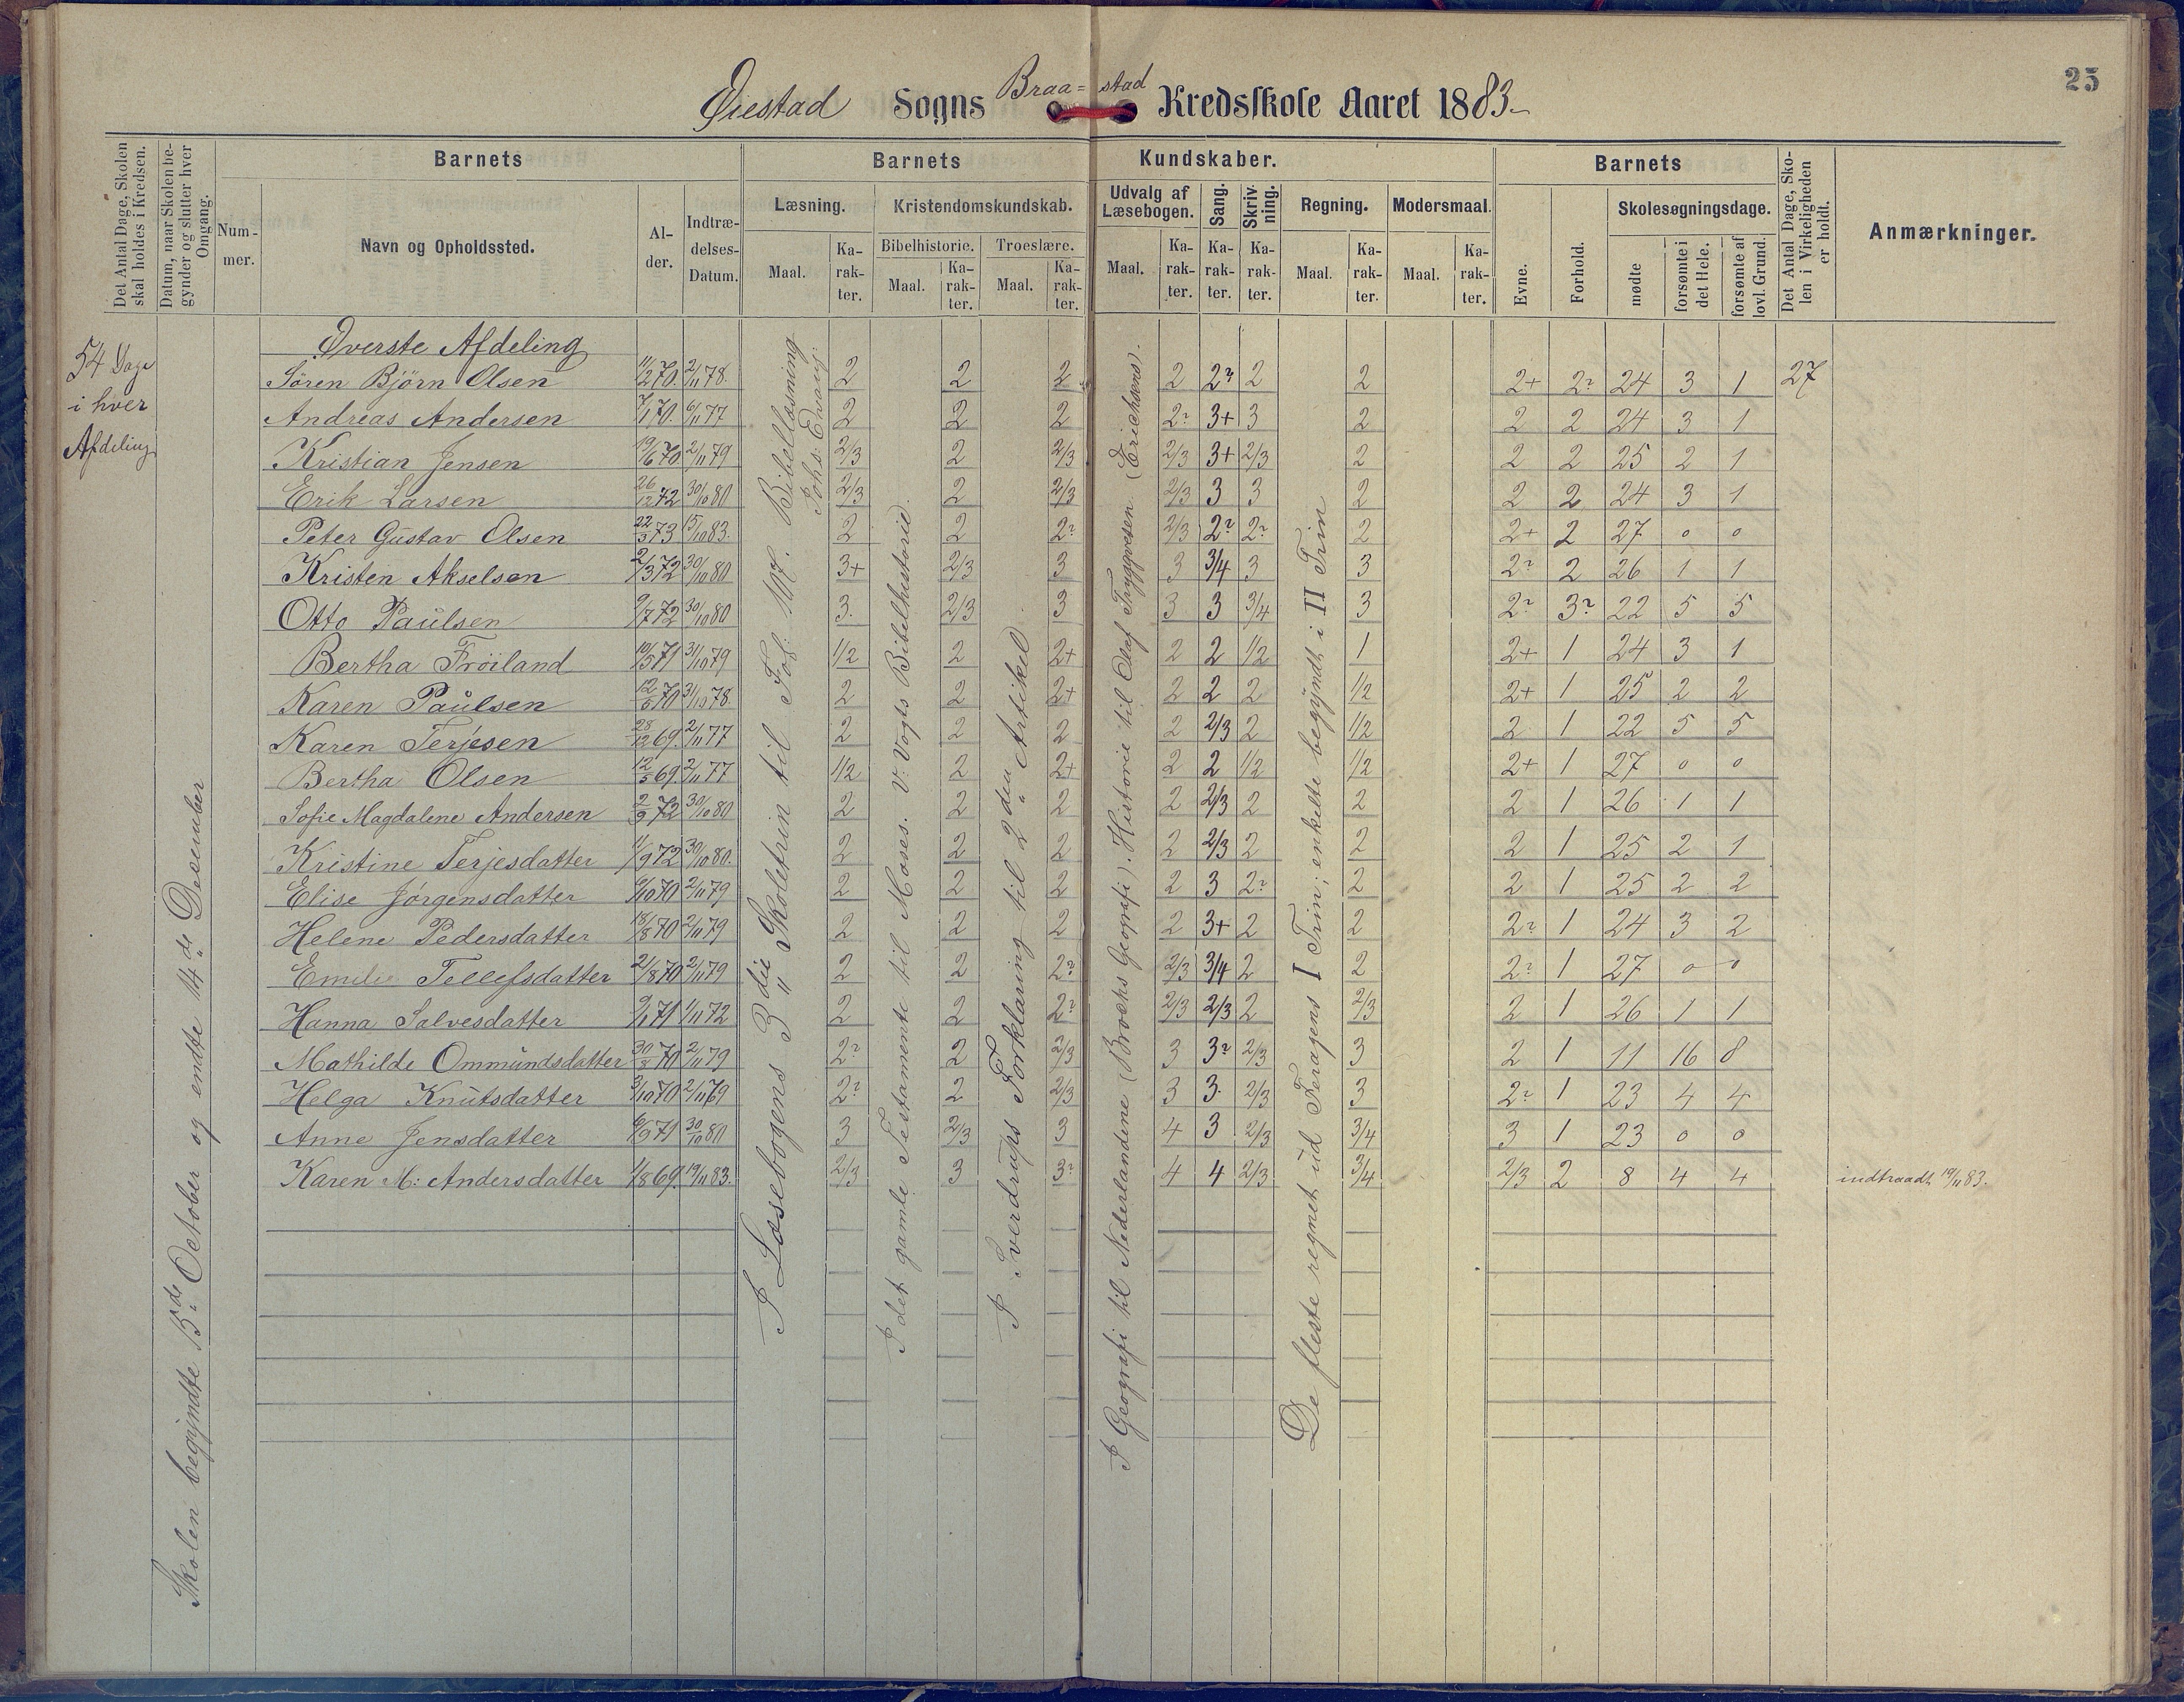 25
Øiestad Sogns Braa=stad Kredsskole Aaret 1883
Det Antal Dage, Skolen skal holdes i Kredsen.
Datum, naar Skolen begynder og slutter hver Omgang.
Barnets
Nummer.
Navn og Opholdssted.
Alder.
Indtrædelses-Datum.
Barnets Kundskaber.
Læsning.
Maal.
Karakter.
Kristendomskundskab.
Bibelhistorie.
Maal.
Karakter.
Troeslære.
Maal.
Karakter.
Udvalg af Læsebogen.
Maal.
Karakter.
Sang.
Karakter.
Skrivning.
Karakter.
Regning.
Maal.
Karakter.
Modersmaal.
Maal.
Karakter.
Barnets
Evne.
Forhold.
Skolesøgningsdage.
mødte
forsømte i det Hele.
forsømte af lovl. Grund.
Det Antal Dage, Skolen i Virkeligheden er holdt.
Anmærkninger.
54 Dage
i hver
Afdeling
Skolen begyndte 15de October og endte 14de December
I Læsebogens 3die Skoletrin til Sof: 107. Bibellæsning
Johs: Evang:
I det gamle Testamente til Moses. V: Vogts Bibelhistorie.
I Sverdrups Forklaring til 2den Artikel.
I Geografi til Nederlandene (Brochs Geografi). Historie til Olaf Tryggvesen (Erichsens).
De fleste regnet ud Feragens I Trin; enkelte begyndt i II Trin
Øverste Afdeling
Sören Björn Olsen 11/2 70. 2/11 78. 2 2 2 2 2? 2 2 2+ 2? 24 3 1 27
Andreas Andersen 7/1 70. 6/11 77 2 2 2 2? 3+ 3 2 2 2 24 3 1
Kristian Jensen 19/6 70 2/11 79 2/3 2 2/3 2/3 3+ 2/3 2 2 2 25 2 1
Erik Larsen 26/12 72 30/10 80 2/3 2 2/3 2/3 3 3 2 2 2 24 3 1
Peter Gustav Olsen 22/3 73 15/10 83. 2 2 2? 2/3 2? 2? 2 2+ 2 27 0 0
Kristen Akselsen 2/3 72 30/10 80 3+ 2/3 3 3 3/4 3 3 2? 2 26 1 1
Otto Paulsen 9/7 72 30/10 80 3. 2/3 3 3 3 3/4 3 2? 3? 22 5 5
Bertha Fröiland 10/5 71 31/10 79 1/2 2 2+ 2 2 1/2 1 2+ 1 24 3 1
Karen Paulsen 12/6 70 31/10 78. 2 2 2+ 2 2 2 1/2 2+ 1 25 2 2
Karen Terjesen 28/12 69. 2/11 77 2 2 2 2 2/3 2 1/2 2 1 22 5 5
Bertha Olsen 12/5 69. 2/11 77 1/2 2 2+ 2 2 1/2 1/2 2+ 1 27 0 0
Sofie Magdalene Andersen 2/9 72 30/10 80 2 2 2 2 2/3 2 2 2 1 26 1 1
Kristine Terjesdatter 11/9 72 30/10 80. 2 2 2 2 2/3 2 2 2 1 25 2 1
Elise Jørgensdatter 6/10 70 2/11 79 2 2 2 2 3 2? 2 2 1 25 2 2
Helene Pedersdatter 18/8 70 2/11 79 2 2 2 2 3+ 2 2 2? 1 24 3 2
Emilie Tellefsdatter 21/8 70 2/11 79 2 2 2? 2/3 3/4 2 2 2? 1 27 0 0
Hanna Salvesdatter 9/1 71 1/11 72 2 2 2? 2/3 2/3 2 2/3 2 1 26 1 1
Mathilde Ommundsdatter 30/8 70 2/11 79 2? 2 2/3 3 3? 2/3 3 2 1 11 16 8
Helga Knutsdatter 3/10 70 2/11 69 2? 2 2/3 3 3. 2/3 3 2? 1 23 4 4
Anne Jensdatter 6/9 71 30/10 80 3 2/3 3 4 3 2/3 3/4 3 1 23 0 0
Karen M: Andersdatter 1/8 69. 19/11 83. 2/3 3 3? 4 4 2/3 3/4 2/3 2 8 4 4 indtraadt 19/11 83.